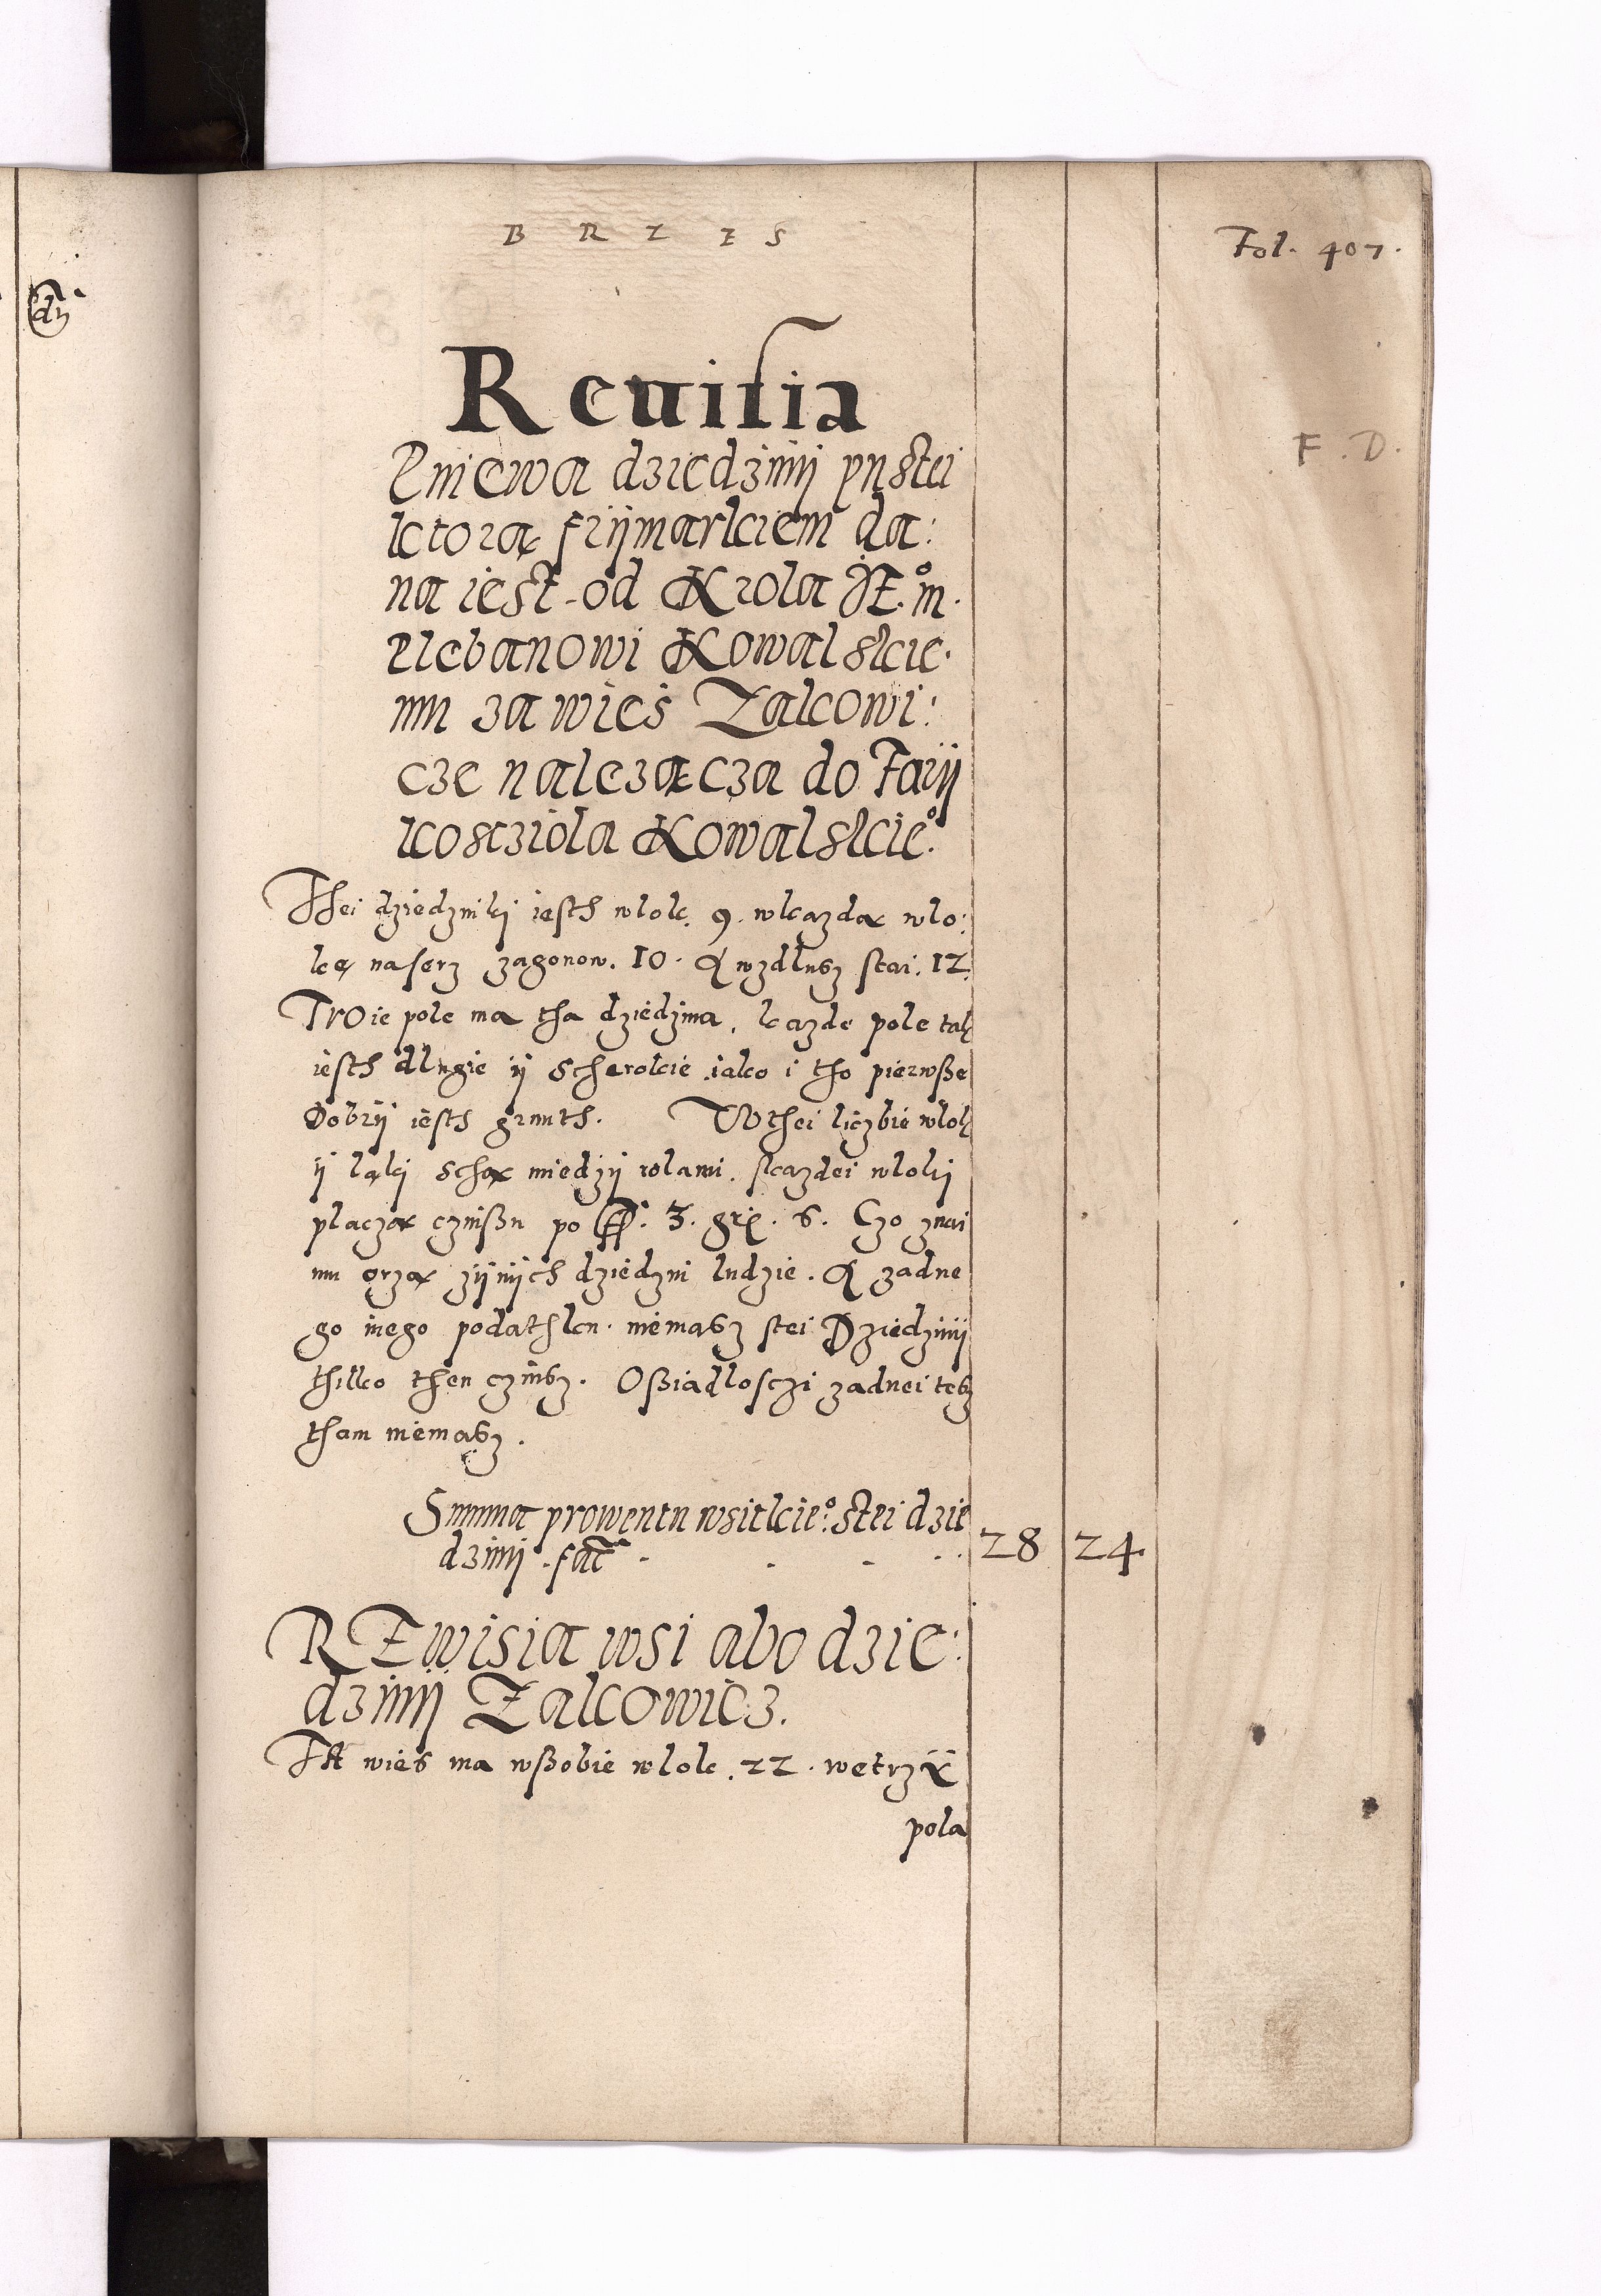 B R Z E S
Fol. 407.
F. D.
Reuisia
Gniewa dziedzinÿ pustei
ktorą frÿmarkiem da:
na iest od Krola JE° m.
Plebanowi Kowalskie.
mu za wies Zakowi:
cze należącza do Farÿ
kosczioła Kowalskie°.
Thei dziedzniki iesth wlok. 9. wkazdą wlo:
kę naserz zagonow. 10. A wzdlusz stai. 12.
TROie pole ma tha dziedzina, kazde pole tak
iesth dlugie ÿ scherokie iako i tho pierwsze
Dobrÿ iesth grunth. W thei liczbie wlok
ÿ ląki schą miedzÿ rolami. skazdei wloki
placzą czinszu po fl. 3. gr. 6. Czo znai
mu orzą zÿnÿch dziedzin ludzie. A zadne
go inego podathku niemasz stei Dziedzinÿ
thilko then czinsz. Osziadlosczi zadnei tesz
tham niemasz.
Summa prowentu wsitkie°: stei dzie
dzinÿ. fac̃ - - - - 28 24
REwisia wsi abo dzie:
dzinÿ Zakowicz.
TA wies ma wszobie wlok. 22. wetrzÿ
pola